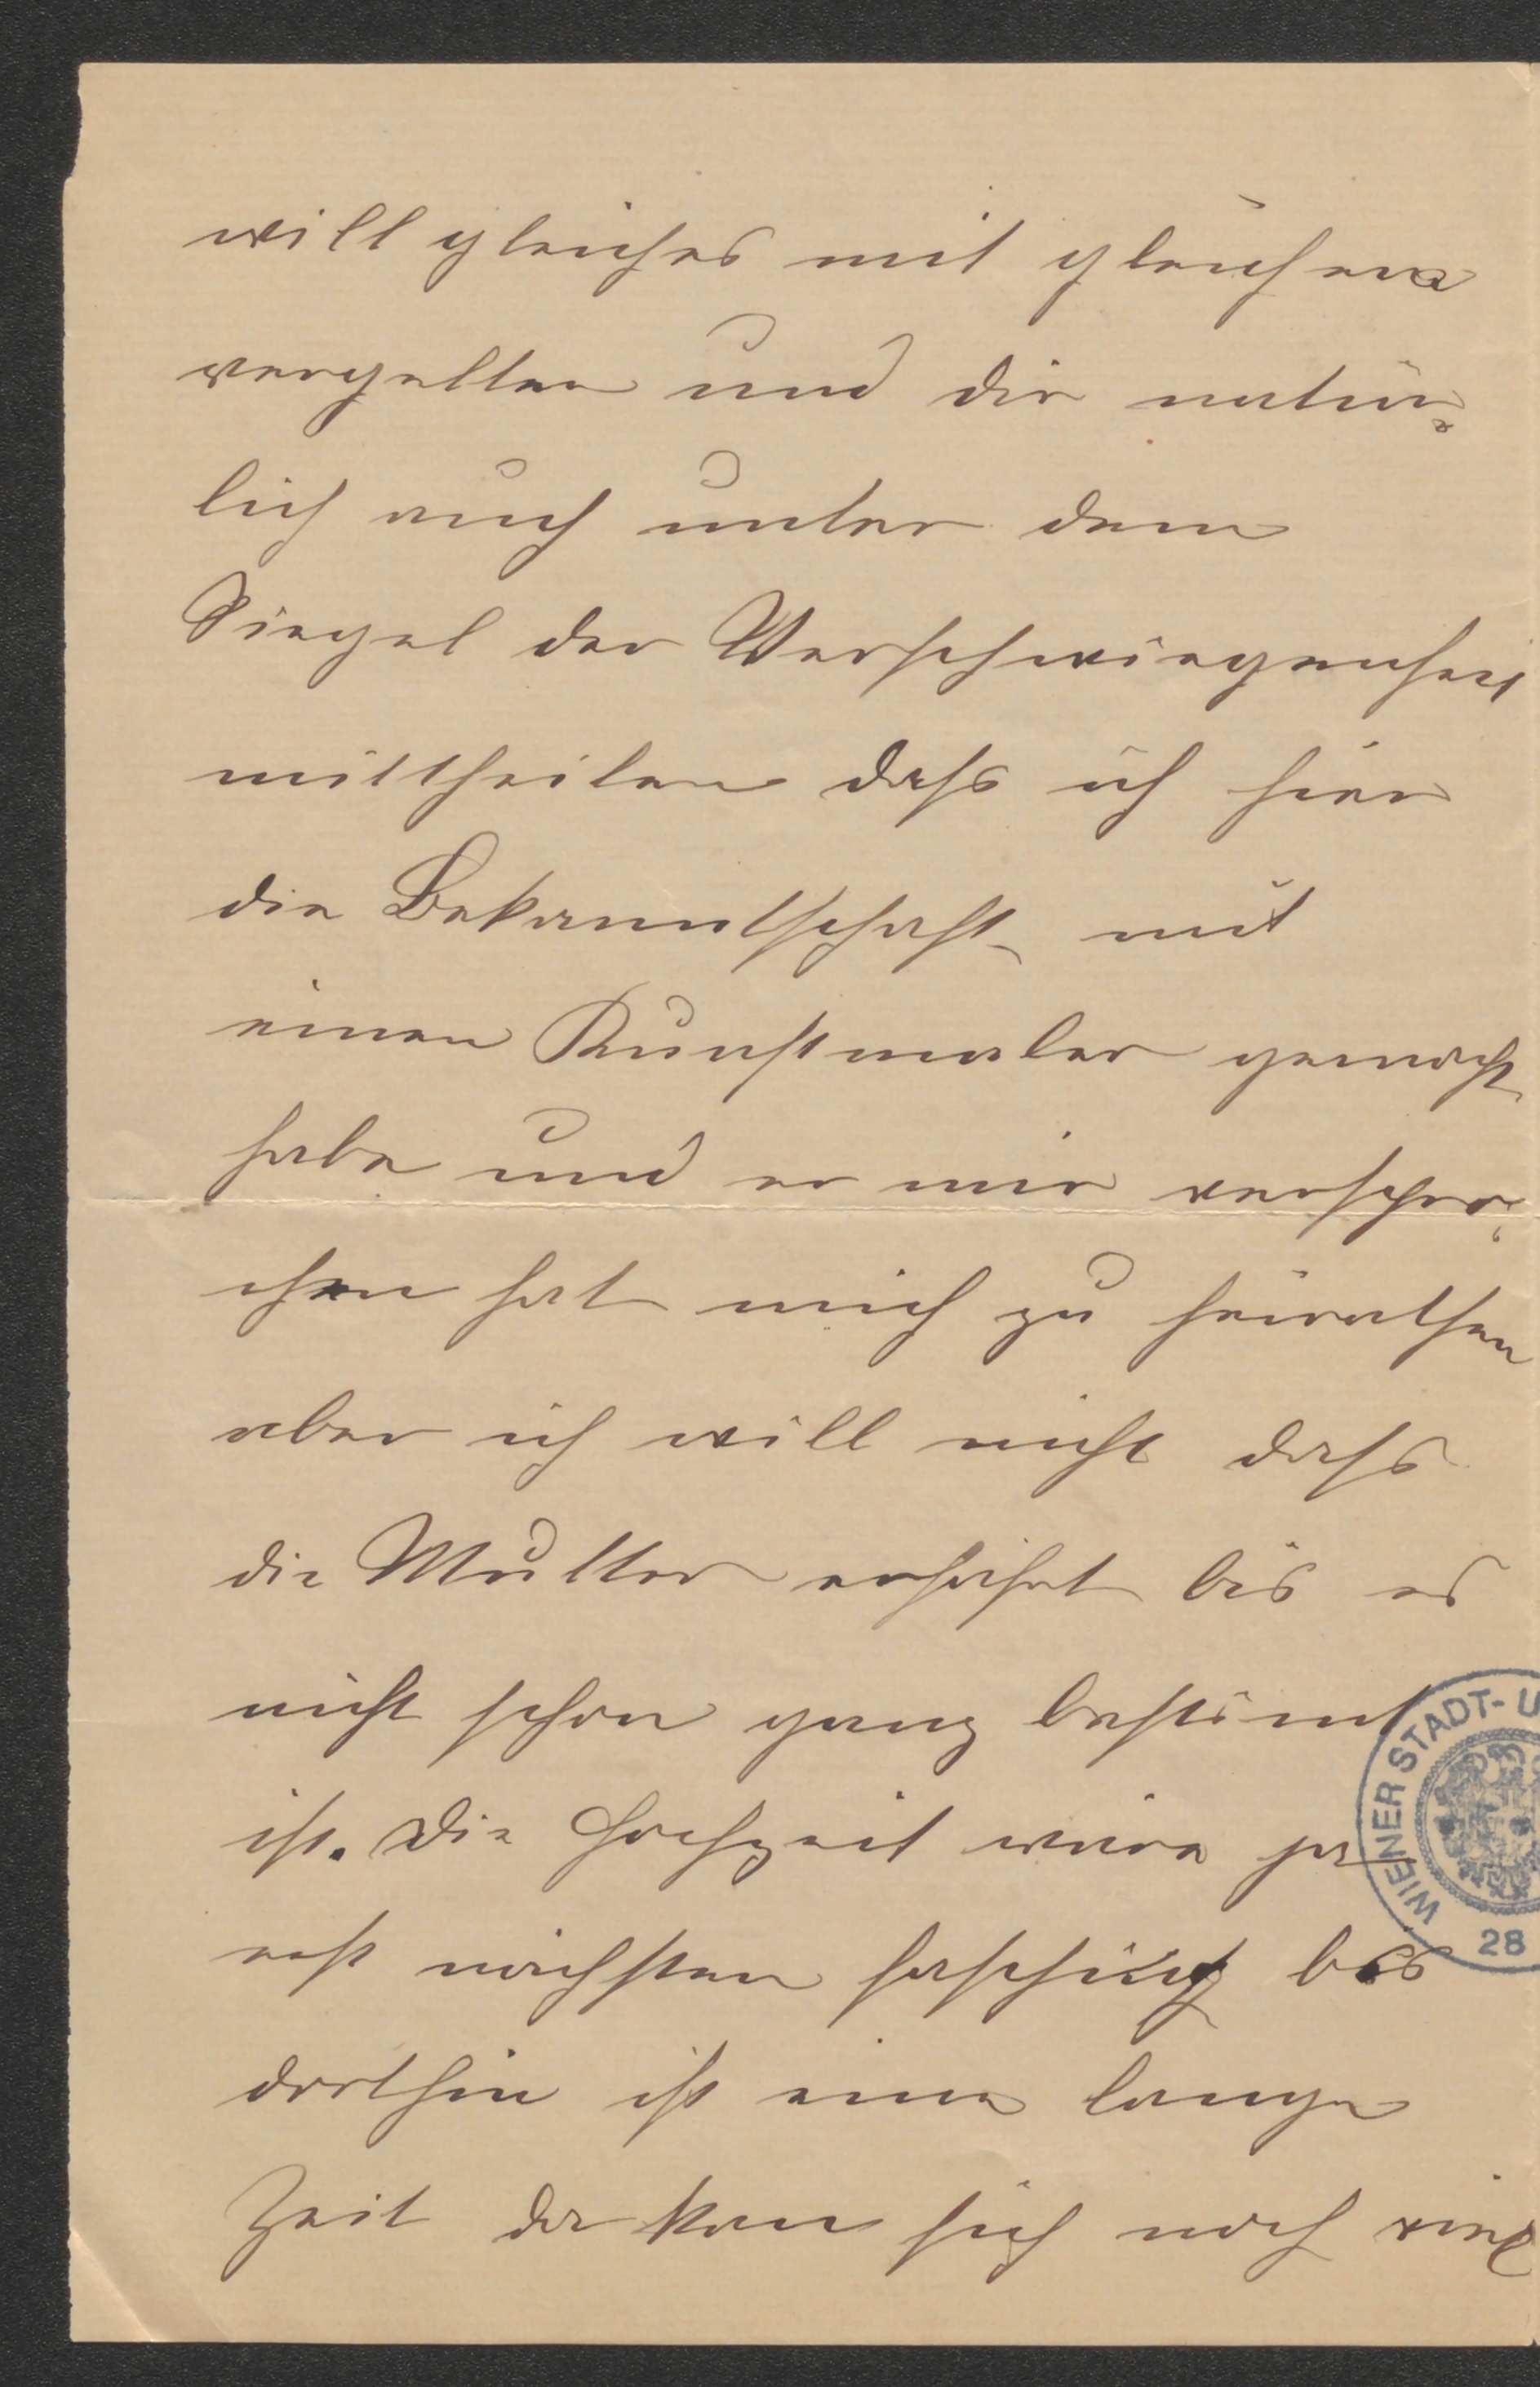 will gleiches mit gleichen
vergelten und dir natür-
lich auch unter dem
Siegel der Verschwiegenheit
mittheilen daß ich hier
die Bekanntschaft mit
einen Kunstmaler gemacht
habe und er mir verspro-
chen hat mich zu heirathen
aber ich will nicht daß
die Mutter erfährt bis es
nicht schon ganz bestimt
ist. Die Hochzeit wäre ja
erst nächsten Fasching bis
dorthin ist eine lange
Zeit da kan sich noch viel
WIENER STADT- U
28